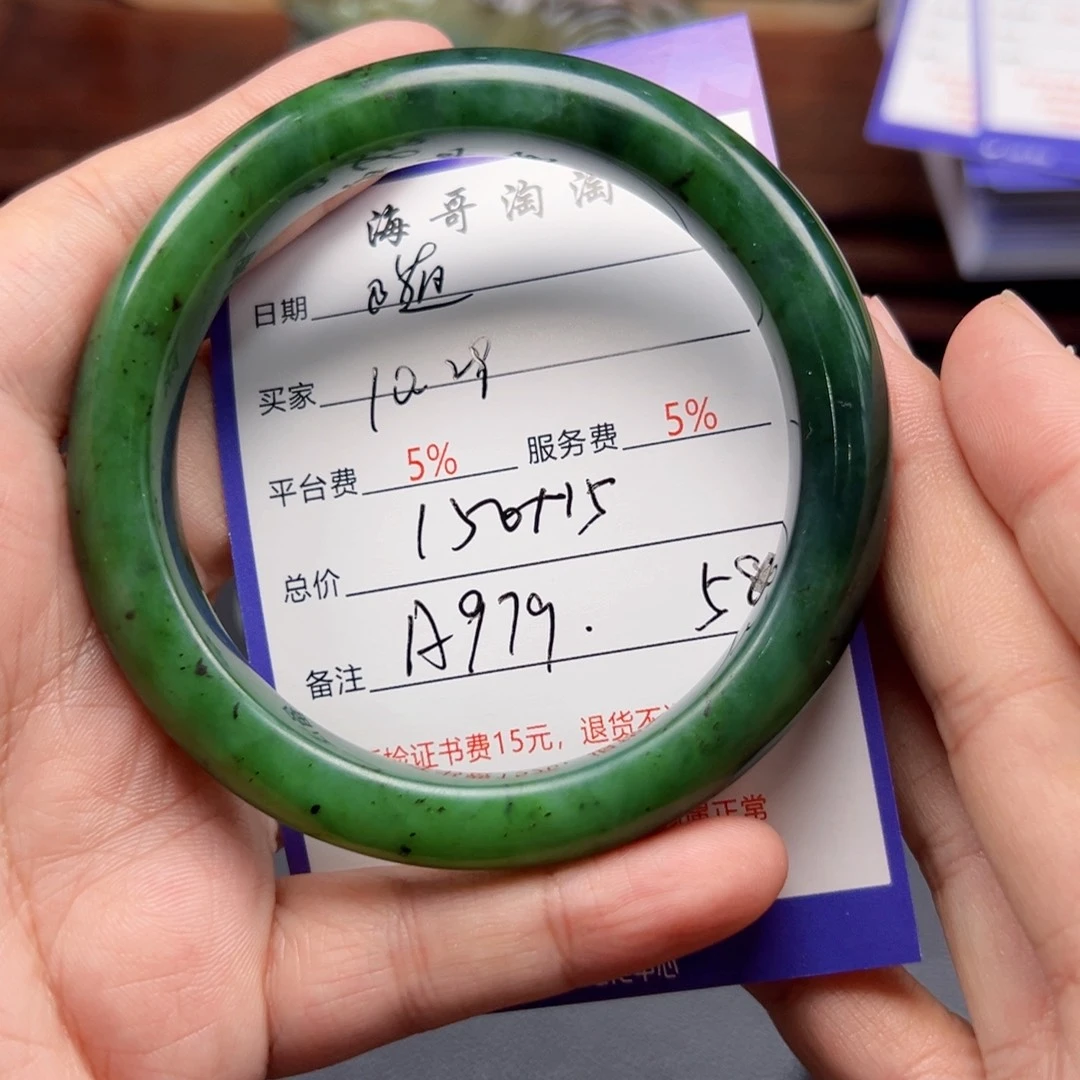 海哥淘淘
日期
买家 10.28
平台费 5% 服务费 5%
总价 150+15
备注 A979. 58
检证书费15元，退货不
属正常
中心